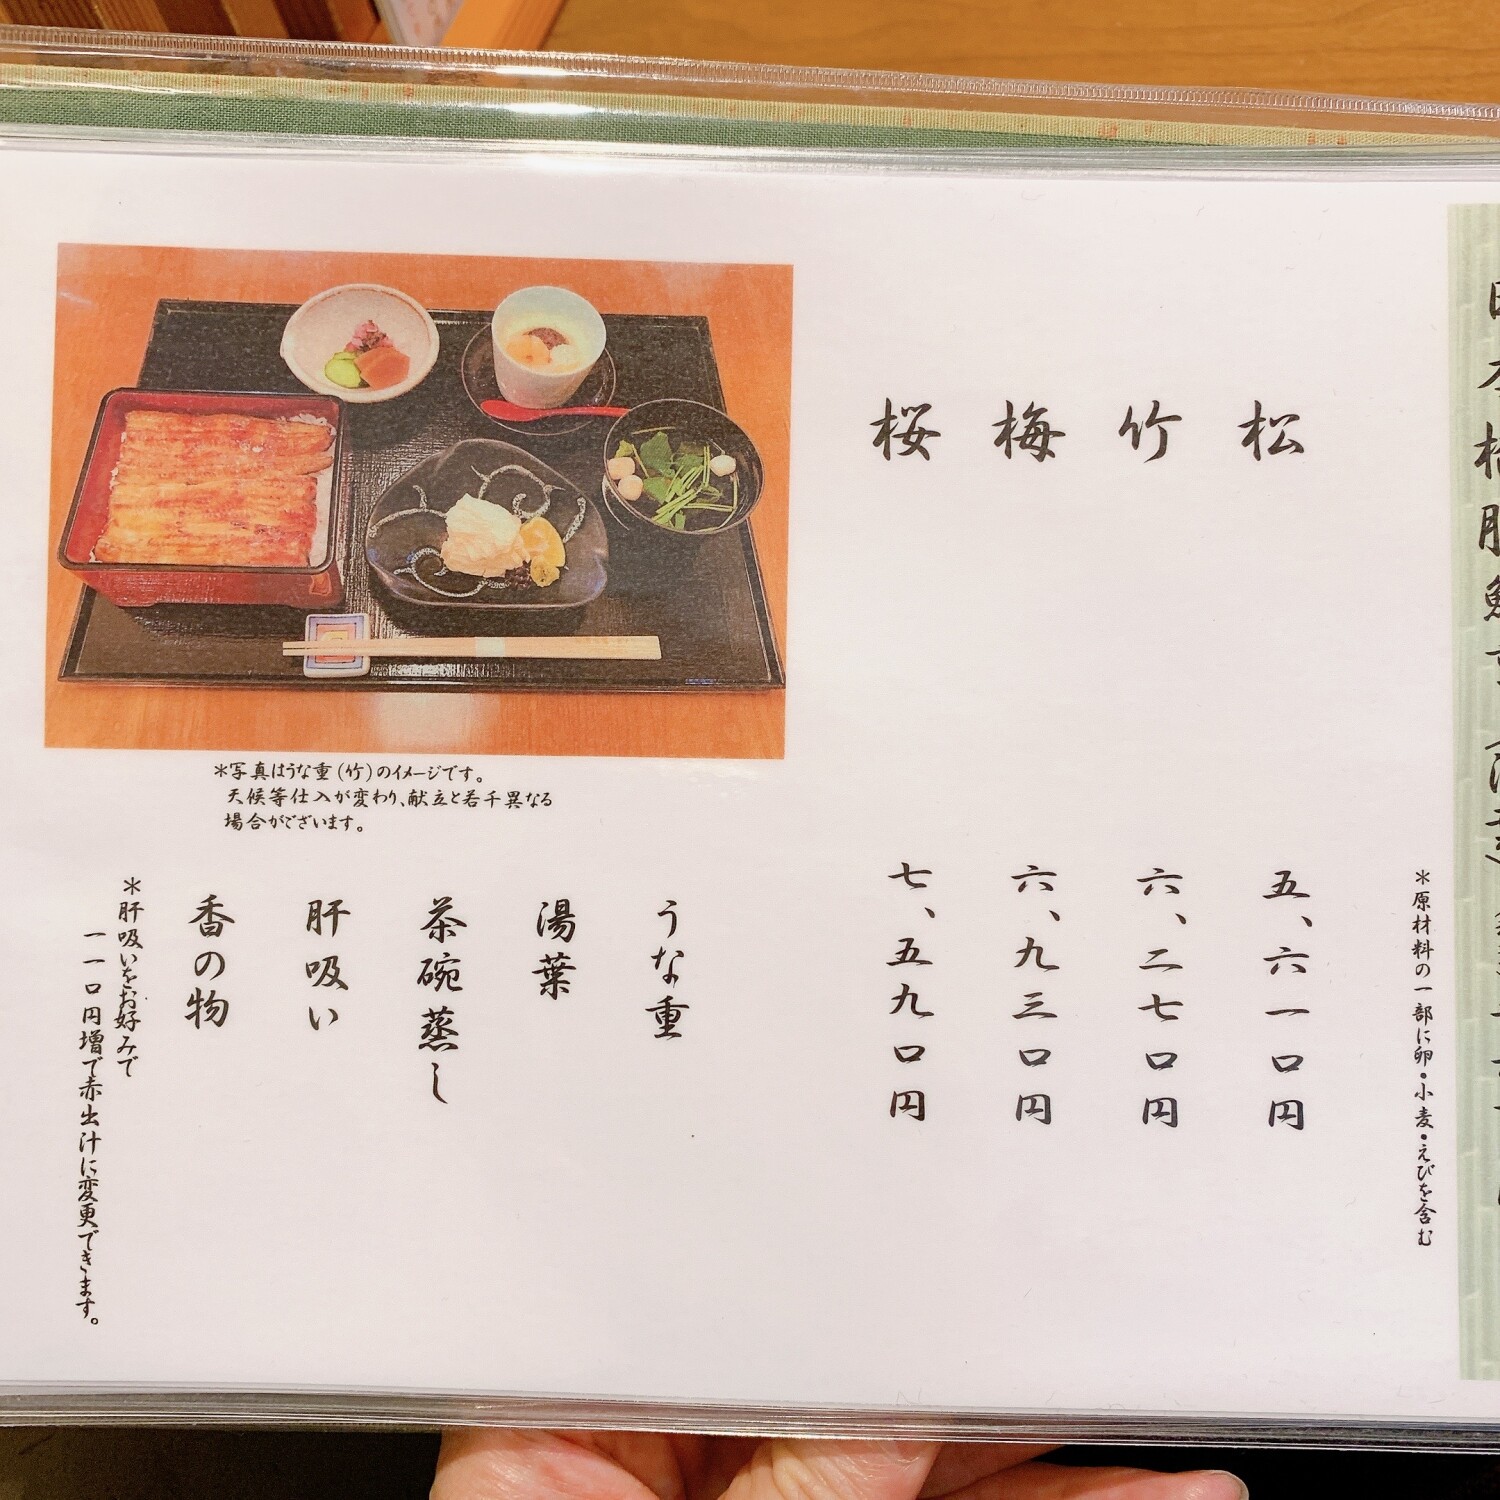 *原材料の一部に卵・小麦・えびを含む
松 五、六一〇円
竹 六、二七〇円
梅 六、九三〇円
桜 七、五九〇円
*写真はうな重(竹)のイメージです。
天候等仕入が変わり、献立と若干異なる
場合がございます。
うな重
湯葉
茶碗蒸し
肝吸い
香の物
*肝吸いをお好みで
一一〇円増で赤出汁に変更できます。